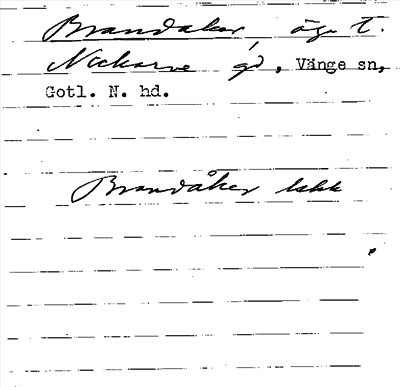 Brandåker, äga t.
Nickarve gd, Vänge sn,
Gotl. N. hd.
Brandåker lskk